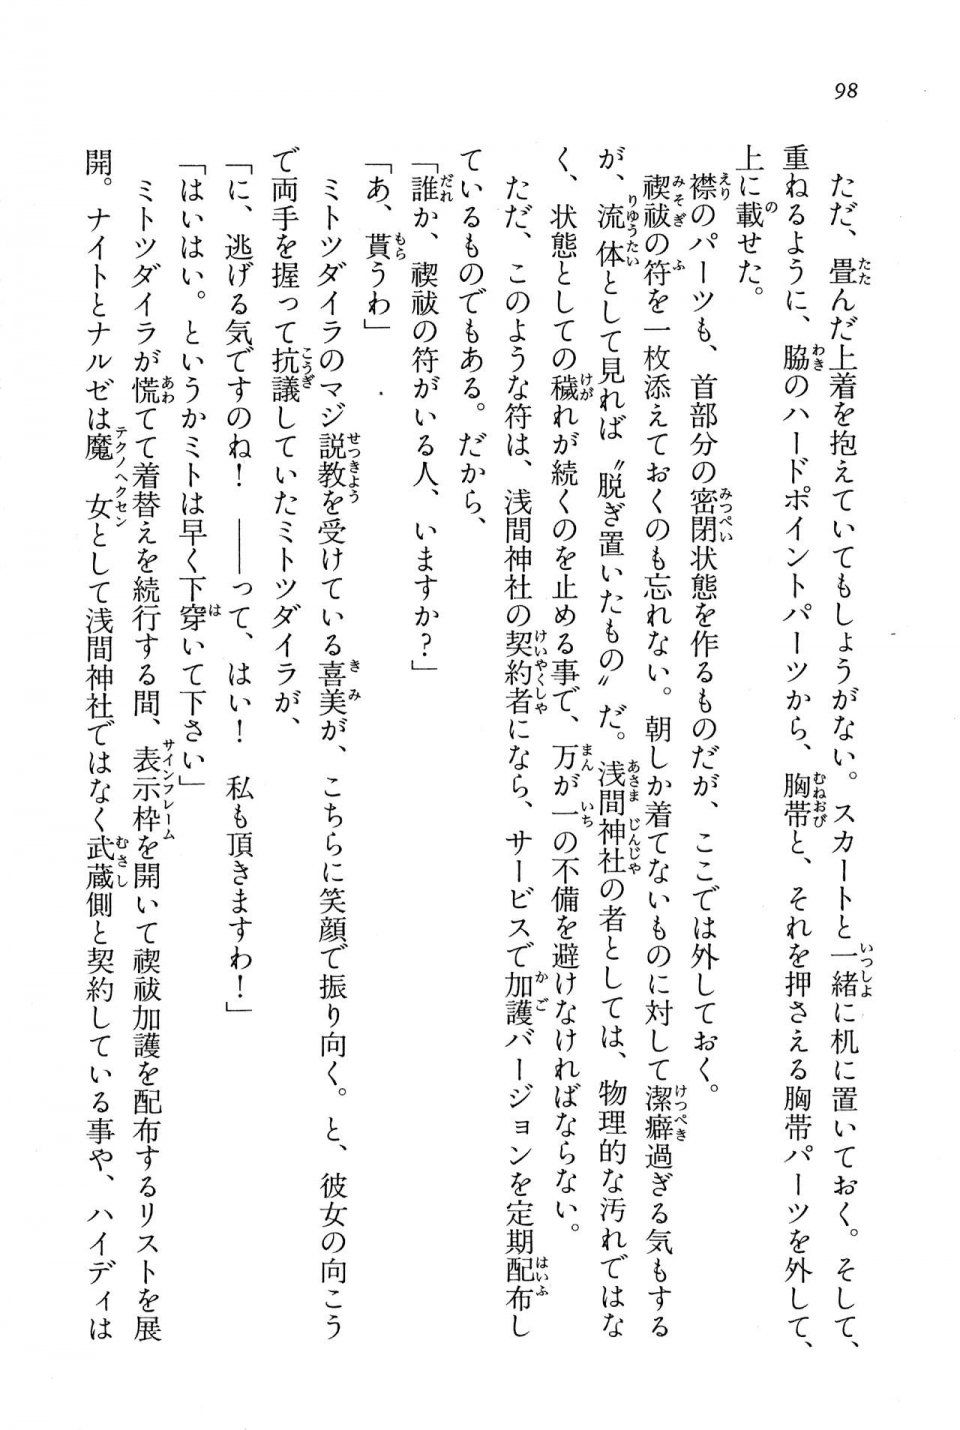 98
ただ、畳んだ上着を抱えていてもしょうがない。スカートと一緒に机に置いておく。そして、
重ねるように、脇のハードポイントパーツから、胸帯と、それを押さえる胸帯パーツを外して、
上に載せた。
襟のパーツも、首部分の密閉状態を作るものだが、ここでは外しておく。
禊祓の符を一枚添えておくのも忘れない。朝しか着てないものに対して潔癖過ぎる気もする
が、流体として見れば〝脱ぎ置いたもの〟だ。浅間神社の者としては、物理的な汚れではな
く、状態としての穢れが続くのを止める事で、万が一の不備を避けなければならない。
ただ、このような符は、浅間神社の契約者になら、サービスで加護バージョンを定期配布し
ているものでもある。だから、
「誰か、禊祓の符がいる人、いますか？」
「あ、貰うわ」
ミトツダイラのマジ説教を受けている喜美が、こちらに笑顔で振り向く。と、彼女の向こう
で両手を握って抗議していたミトツダイラが、
「に、逃げる気ですのね！　――って、はい！　私も頂きますわ！」
「はいはい。というかミトは早く下穿いて下さい」
ミトツダイラが慌てて着替えを続行する間、表示枠を開いて禊祓加護を配布するリストを展
開。ナイトとナルゼは魔女として浅間神社ではなく武蔵側と契約している事や、ハイディは